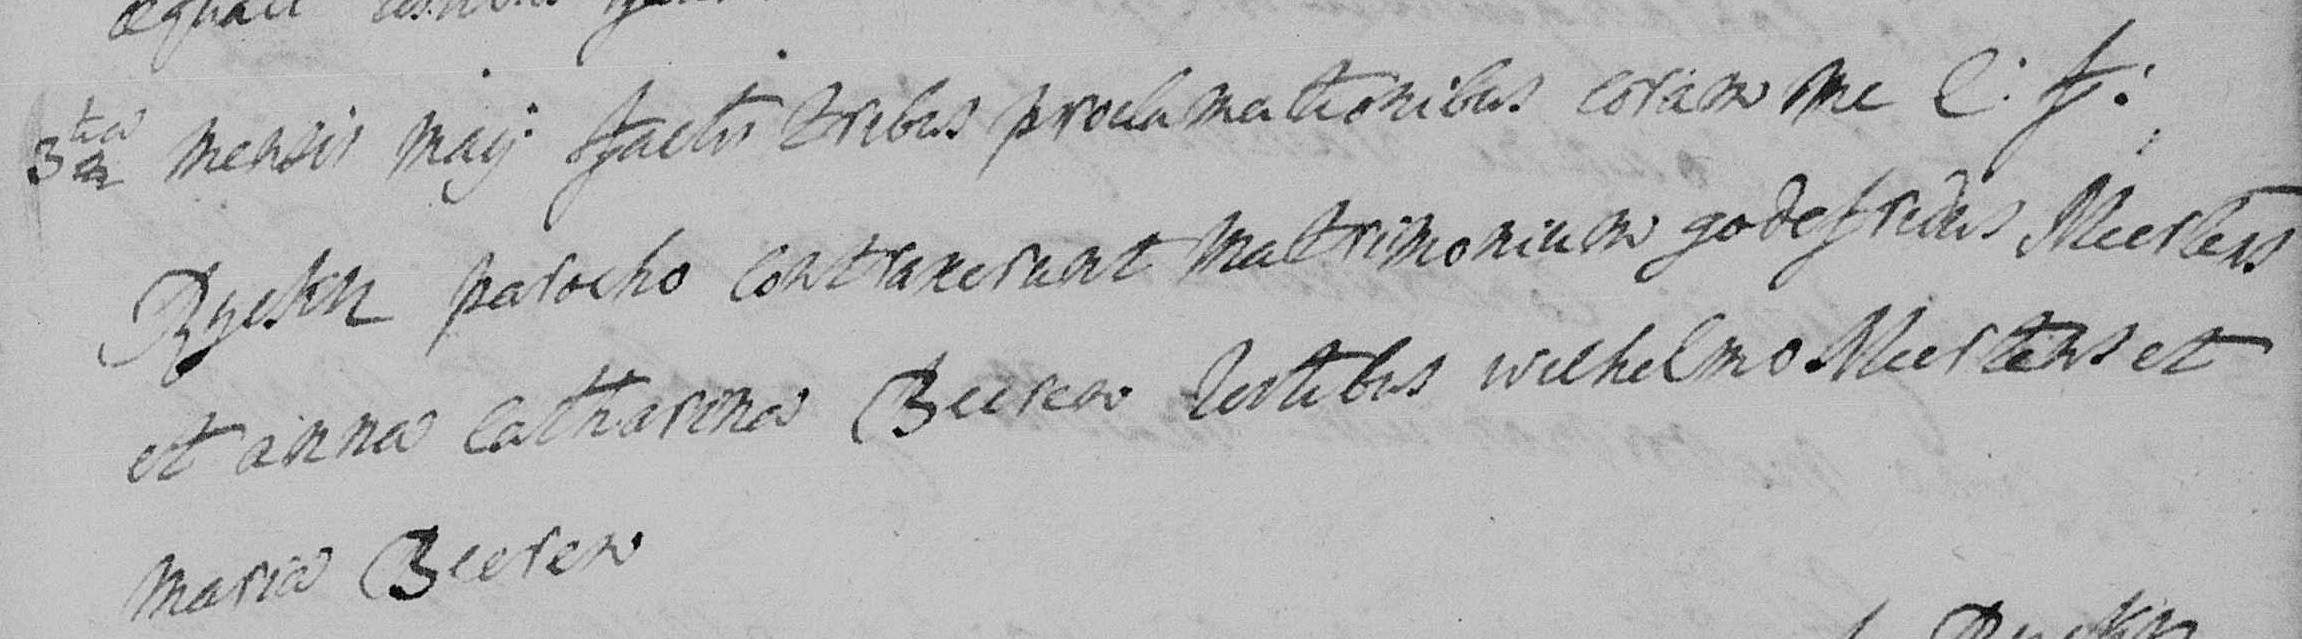 æquali
3tia mensis maij factis tribus proclamationibus coram me C: f:
Ryckn parocho contraxerunt matrimonium godefridus Meertens
et anna catharina Beeren testibus wilhelmo Meertens et
maria Beeren